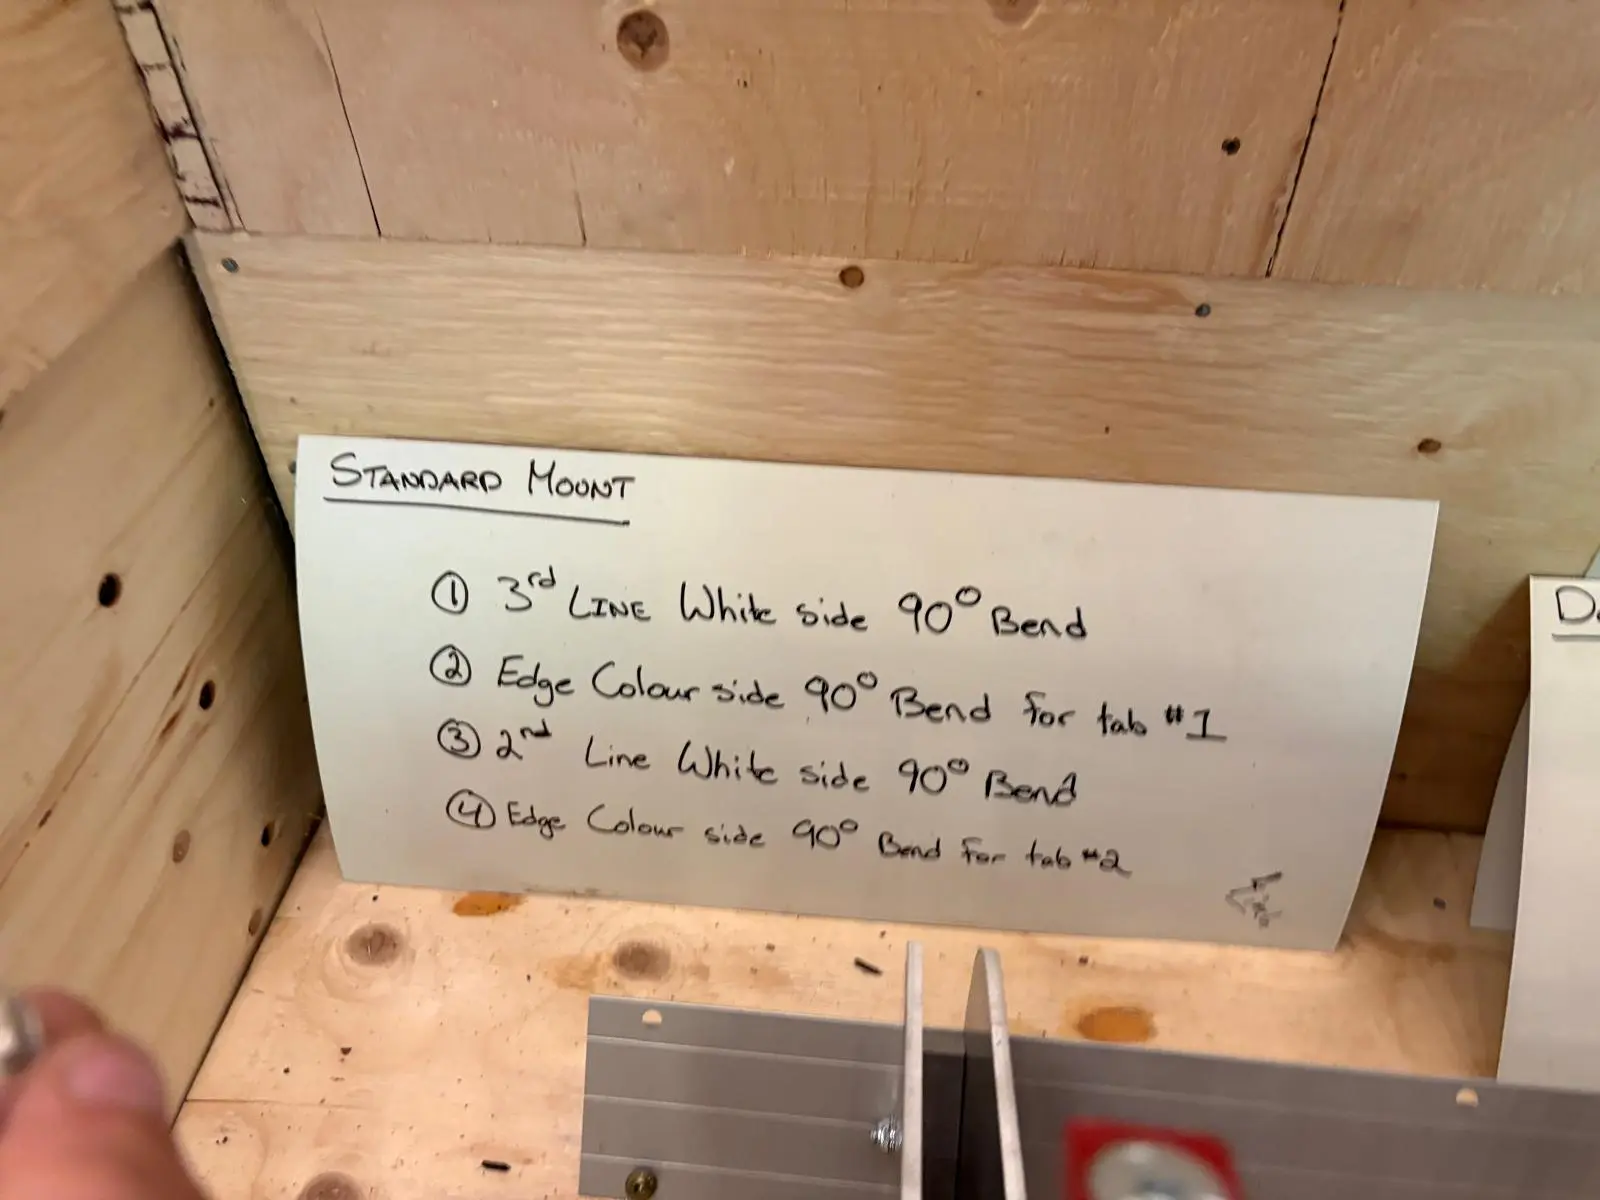 STANDARD MOUNT
① 3rd LINE White side 90° Bend
② Edge Colour side 90° Bend for tab #1
③ 2nd Line White side 90° Bend
④ Edge Colour side 90° Bend for tab #2